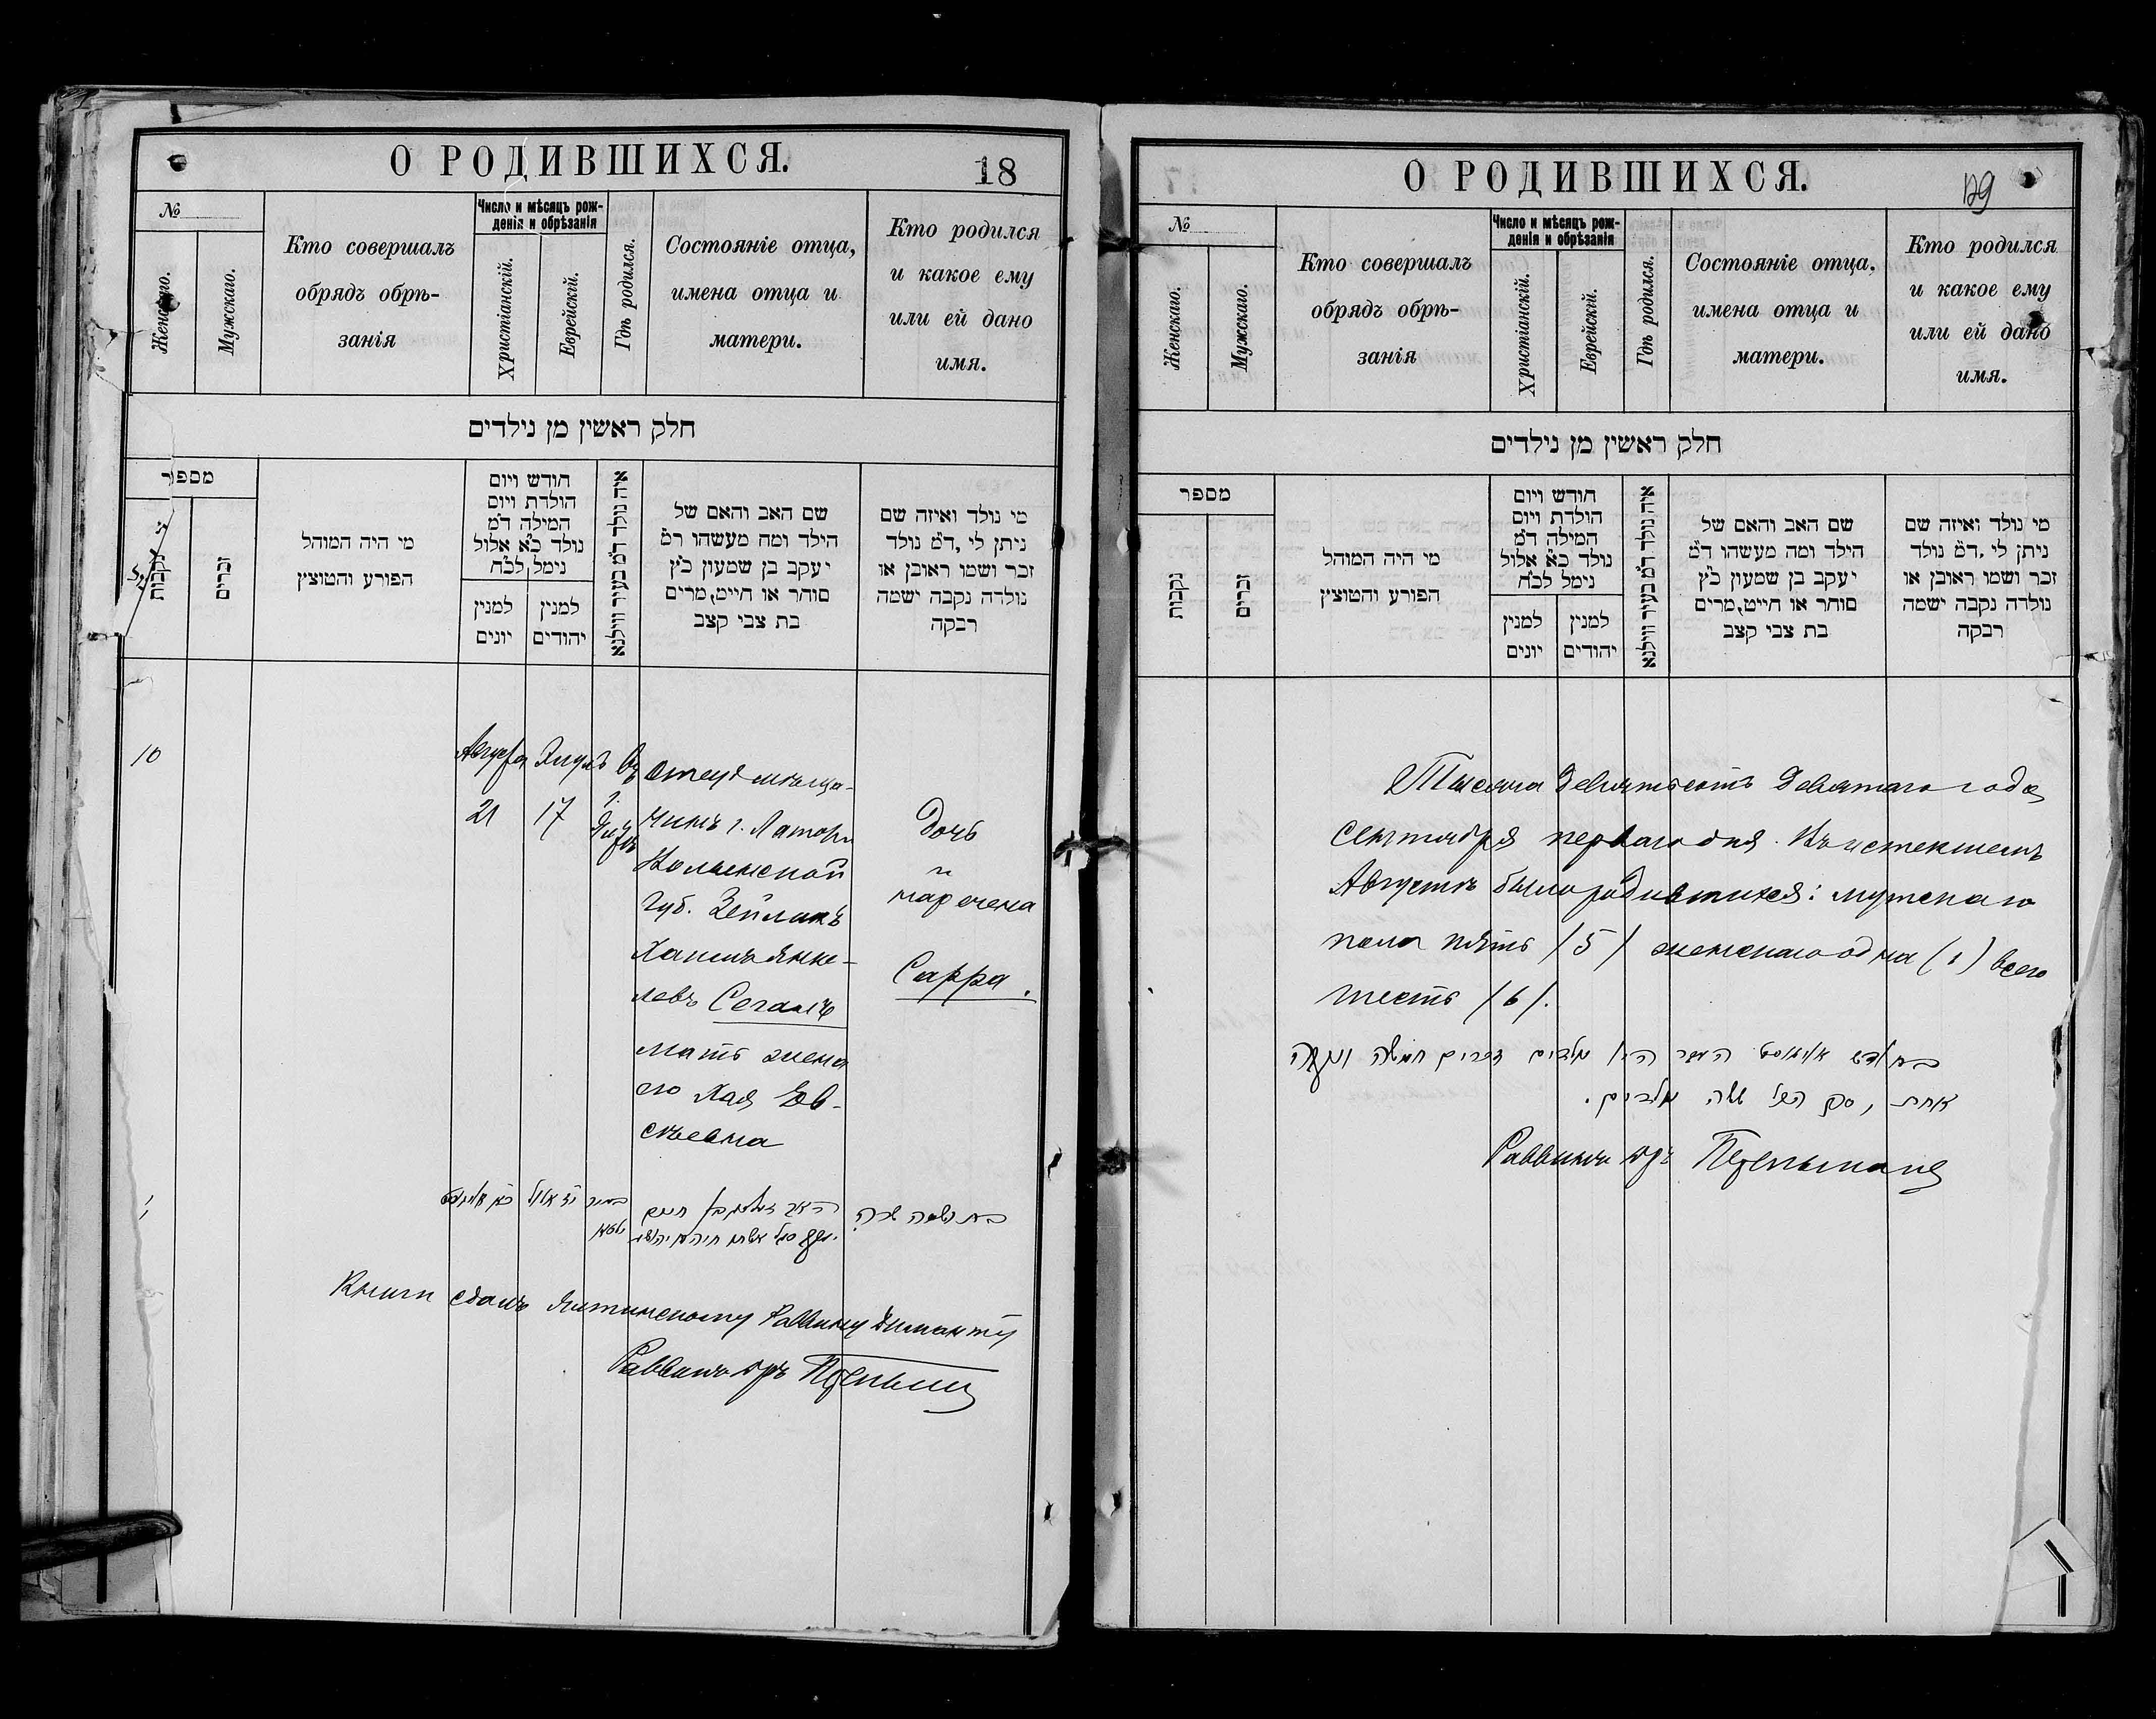 О РОДИВШИХСЯ.
18
№
Женскаго.
Мужскаго.
Кто совершалъ
обрядъ обрѣ-
занія
Число и мѣсяцъ рож-
денія и обрѣзанія
Христіанскій.
Еврейскій.
Гдѣ родился.
Состояніе отца,
имена отца и
матери.
Кто родился
и какое ему
или ей дано
имя.
חלק ראשין מן נילדים
מספר
נקבות
זכרים
מי היה המוהל
הפורע והמוצץ
חודש ויום
הולדת ויום
המילה ד״מ
נולד כ״א אלול
נימל לכ״ח
למנין
יונים
למנין
יהודים
איה נולד ד״מ בעיר ווילנא
שם האב והאם של
הילד ומה מעשהו ד״מ
יעקב בן שמעון כ״ץ
סוחר או חייט, מרים
בת צבי קצב
מי נולד ואיזה שם
ניתן לי, ד״מ נולד
זכר ושמו ראובן או
נולדה נקבה ישמה
רבקה
10
Августа
21
Элулъ
17
Въ
г.
Отецъ мѣща-
нинъ г.
Волынской
губ. Зейликъ
Хаимъ Янке-
левъ Сегалъ
мать жена
его Хая Ев-
сѣевна
Дочь
и
наречена
Сарра.
כ״א אויגוסט
י״ז אלול
חיים
סגל
בת ושמה שרה
Книги сданъ Раввину
Раввинъ дръ
О РОДИВШИХСЯ.
№
Женскаго.
Мужскаго.
Кто совершалъ
обрядъ обрѣ-
занія
Число и мѣсяцъ рож-
денія и обрѣзанія
Христіанскій.
Еврейскій.
Гдѣ родился.
Состояніе отца,
имена отца и
матери.
Кто родился
и какое ему
или ей дано
имя.
חלק ראשין מן נילדים
מספר
נקבות
זכרים
מי היה המוהל
הפורע והמוצץ
חודש ויום
הולדת ויום
המילה ד״מ
נולד כ״א אלול
נימל לכ״ח
למנין
יונים
למנין
יהודים
איה נולד ד״מ בעיר ווילנא
שם האב והאם של
הילד ומה מעשהו ד״מ
יעקב בן שמעון כ״ץ
סוחר או חייט, מרים
בת צבי קצב
מי נולד ואיזה שם
ניתן לי, ד״מ נולד
זכר ושמו ראובן או
נולדה נקבה ישמה
רבקה
Тысяча девятьсотъ девятаго года
сентября перваго дня. Въ истекшемъ
Августѣ было родившихся: мужскаго
пола пять /5/ женскаго одна (1) всего
шесть /6/.
בחודש אויגוסט העבר היו נולדים זכרים חמשה ונקבה
אחת, סך הכל ששה נולדים.
Раввинъ дръ